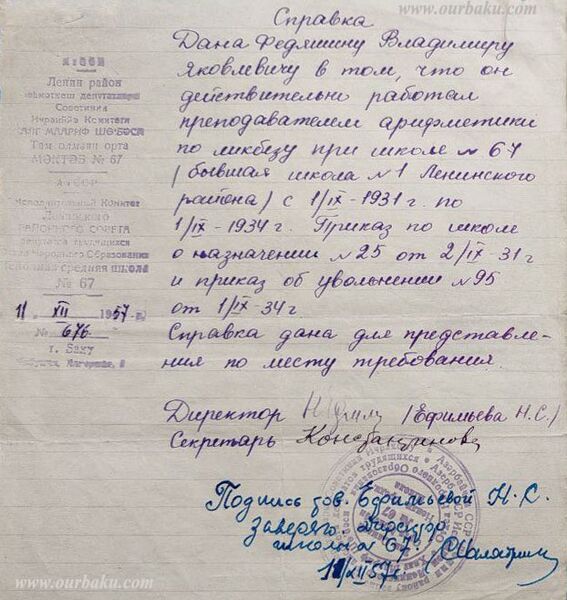 www.ourbaku.com
Справка
Дана Федяшину Владимиру
Яковлевичу в том, что он
действительно работал
преподавателем арифметики
по ликбезу при школе № 67
(бывшая школа № 1 Ленинского
района) с 1/IX-1931 г. по
1/IX-1934 г. Приказ по школе
о назначении № 25 от 2/IX-31 г
и приказ об увольнении № 95
от 1/IX-34 г.
Справка дана для представле-
ния по месту требования.
Ленин район
Там олмаян орта
МӘКТӘБ № 67
Аз ССР
Исполнительный Комитет
Ленинского
РАЙОННОГО СОВЕТА
депутатов трудящихся
Отдел Народного Образования
Неполная средняя школа
№ 67
1/ XII 1957 г.
№ 676
г. Баку
Директор (Ефимьева Н.С.)
Секретарь Константинова
Подпись тов. Ефимьевой Н.С.
заверяю Директор
школы № 67.
1/XII 57 г.
www.ourbaku.com